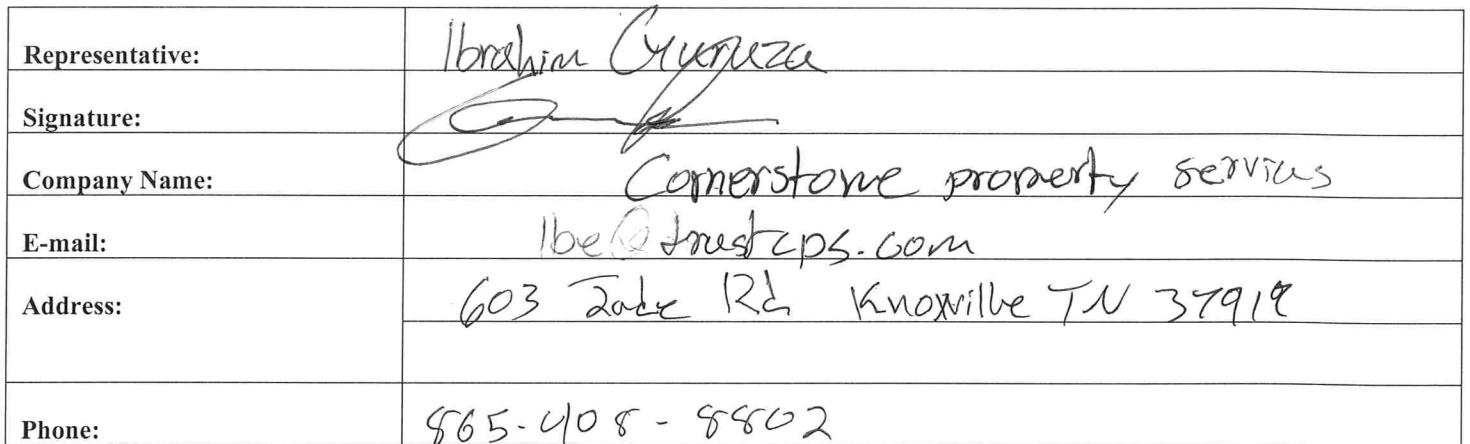 Representative: Ibrahim
Signature:
Company Name: Cornerstone property services
E-mail: Ibe@trustcps.com
Address: 603 Rd Knoxville TN 37919
Phone: 865-408-8802